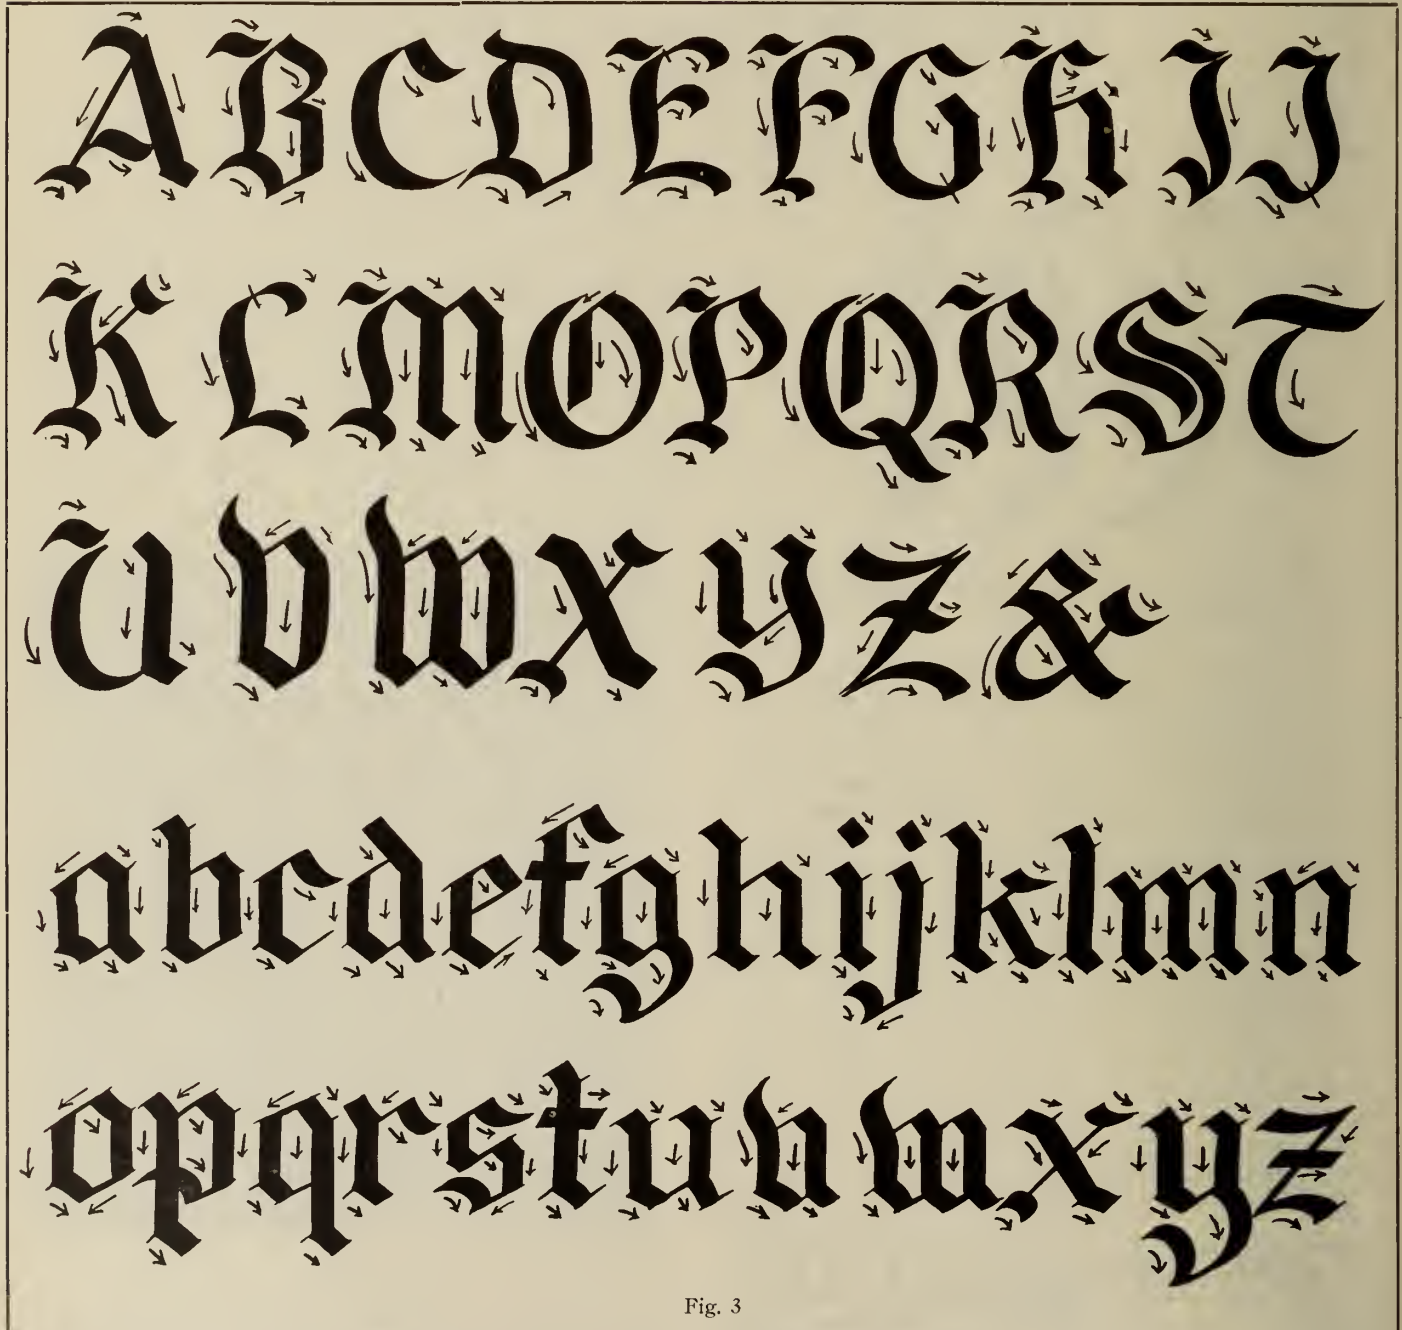 A B C D E F G H I J
K L M O P Q R S T
U V W X Y Z &
a b c d e f g h i j k l m n
o p q r s t u v w x y z
Fig. 3